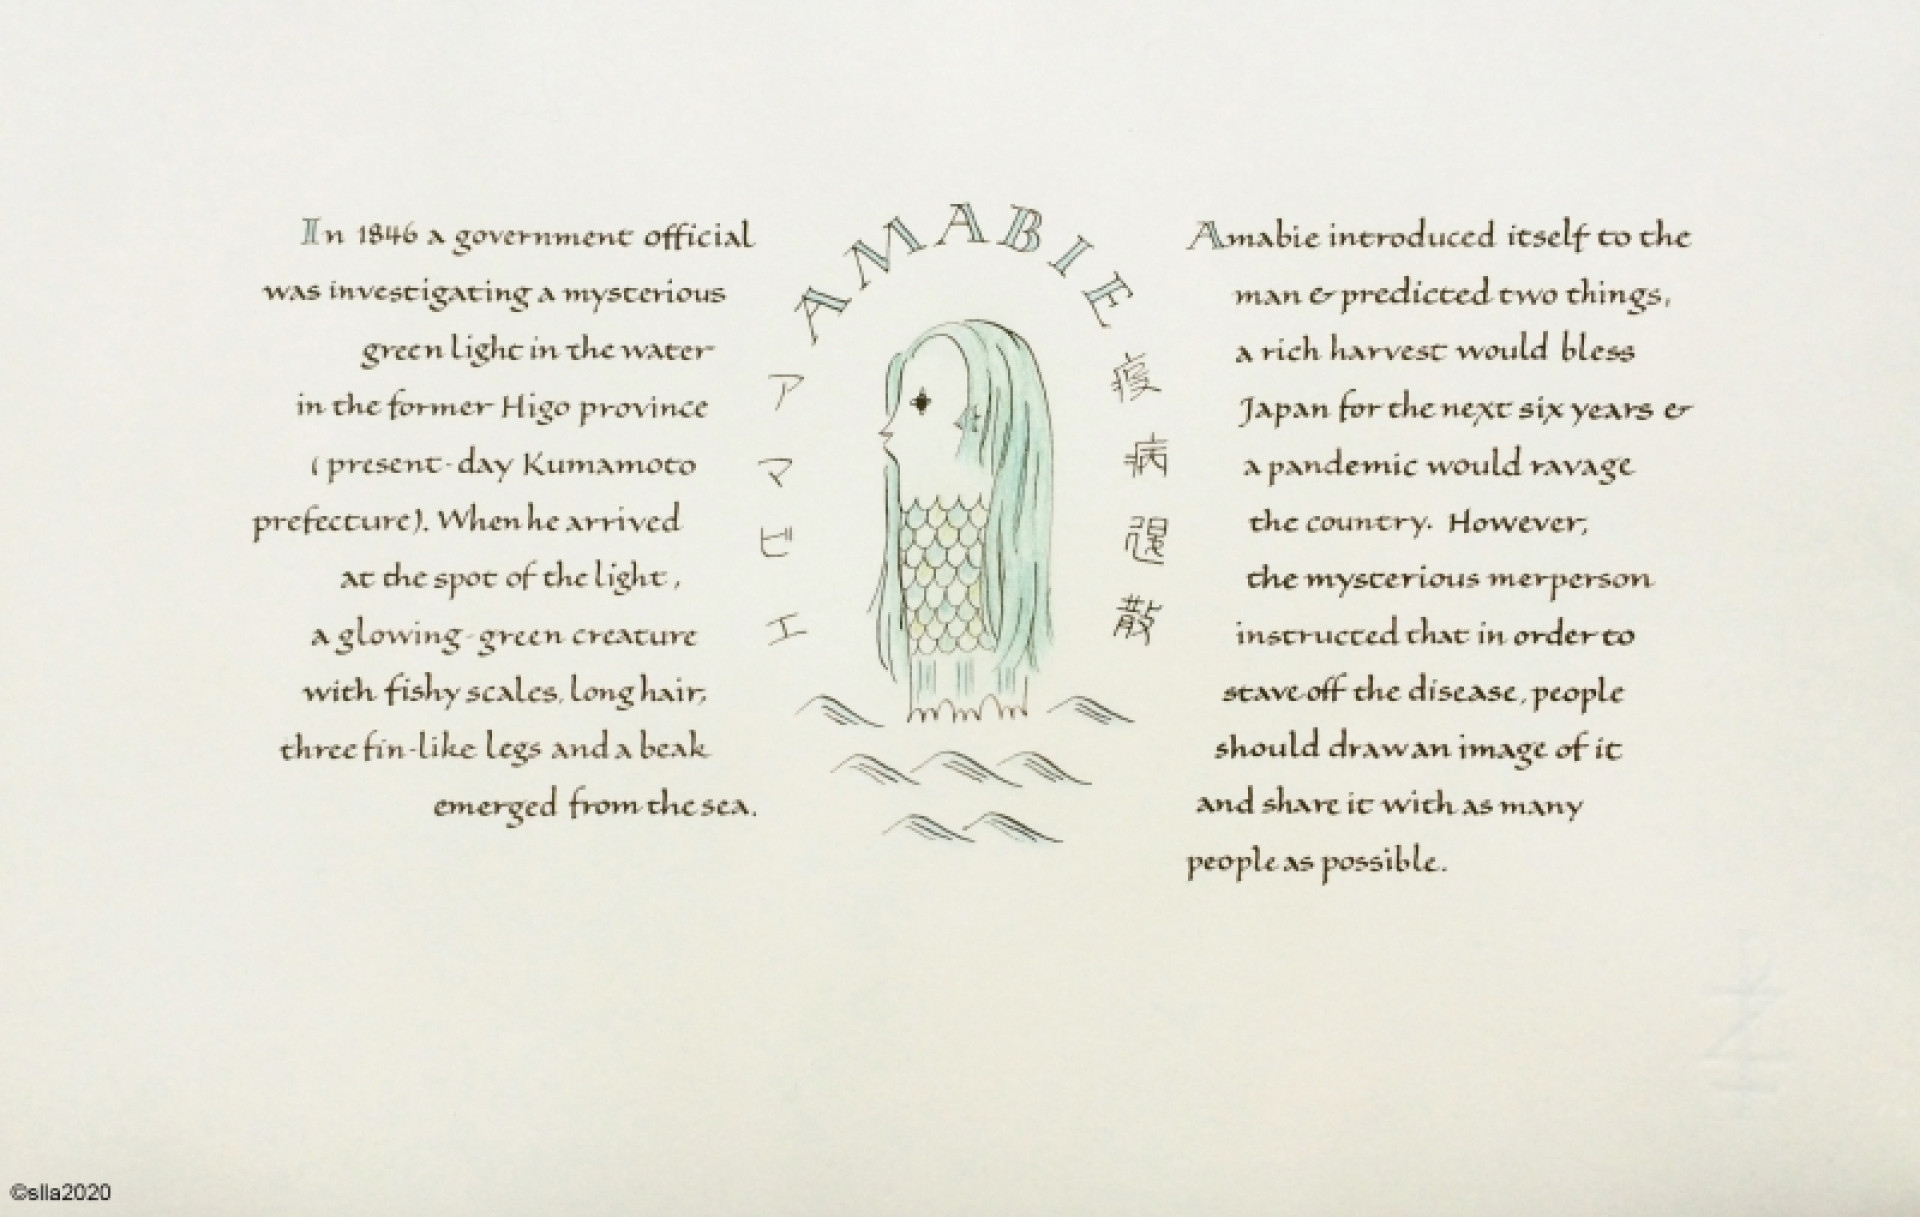 In 1846 a government official
was investigating a mysterious
green light in the water
in the former Higo province
(present-day Kumamoto
prefecture). When he arrived
at the spot of the light,
a glowing-green creature
with fishy scales, long hair,
three fin-like legs and a beak
emerged from the sea.
AMABIE
アマビエ
疫病退散
Amabie introduced itself to the
man & predicted two things,
a rich harvest would bless
Japan for the next six years &
a pandemic would ravage
the country. However,
the mysterious merperson
instructed that in order to
stave off the disease, people
should draw an image of it
and share it with as many
people as possible.
©slla2020